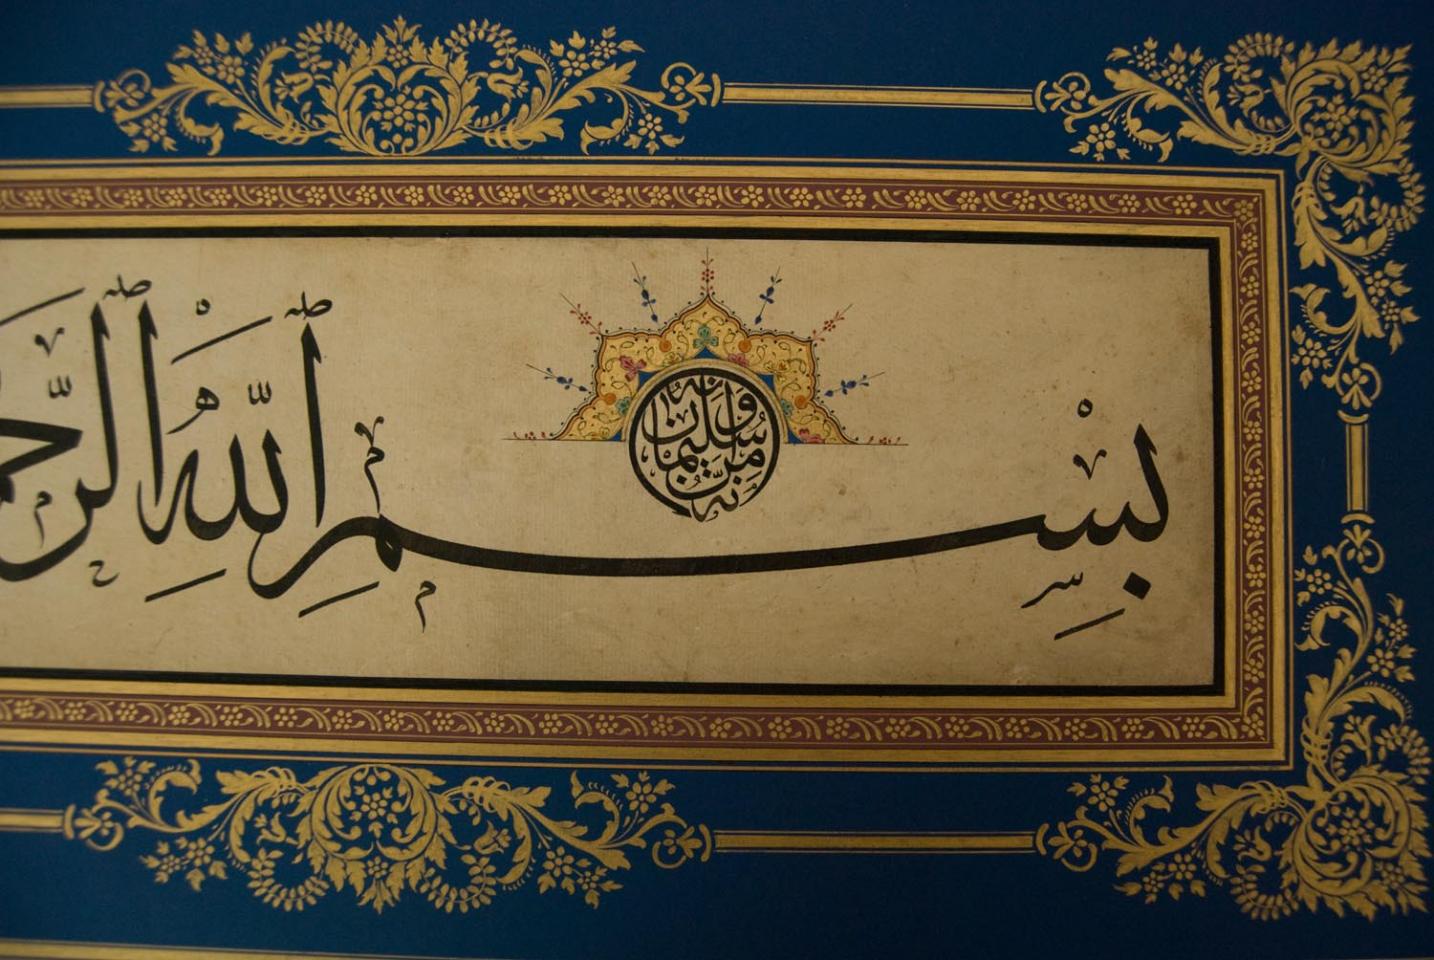 إنه من سليمان وإنه
بِسْمِ اللَّهِ الرَّح